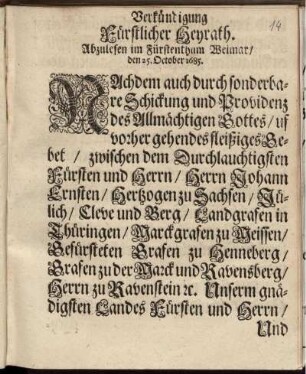 Verkündigung
Fürstlicher Heyrath.
Abzulesen im Fürstenthum Weimar/
den 25. October 1685.
14
NAchdem auch durch sonderba-
re Schickung und Providenz
des Allmächtigen Gottes/ uf
vorher gehendes fleißiges Ge-
bet / zwischen dem Durchlauchtigsten
Fürsten und Herrn/ Herrn Johann
Ernsten / Hertzogen zu Sachsen/ Jü-
lich/ Cleve und Berg/ Landgrafen in
Thüringen/ Marckgrafen zu Meissen/
Gefürsteten Grafen zu Henneberg/
Grafen zu der Marck und Ravensberg/
Herrn zu Ravenstein ꝛc. Unserm gnä-
digsten Landes Fürsten und Herrn/
Und